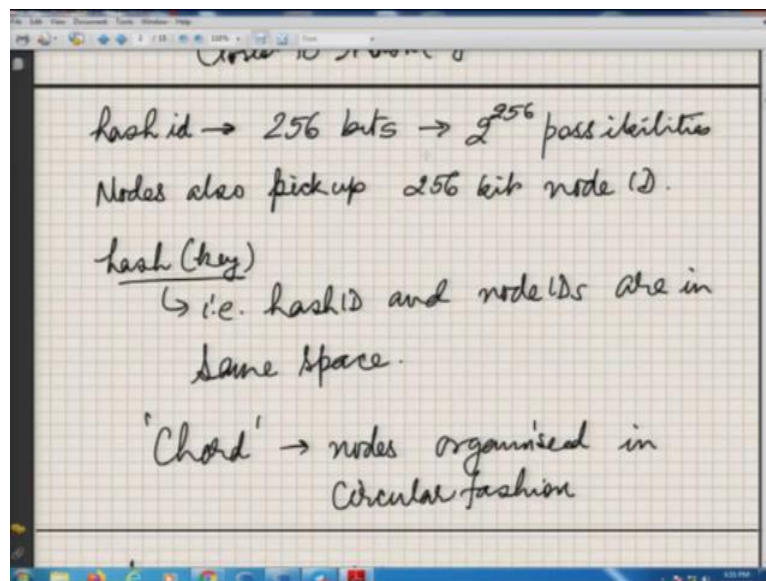 File Edit View Document Tools Window Help
hash id → 256 bits → 2^256 possibilities
Nodes also pick up 256 bit node ID.
hash (key)
↳ i.e. hashID and nodeIDs are in
same space.
'Chord' → nodes organised in
Circular fashion